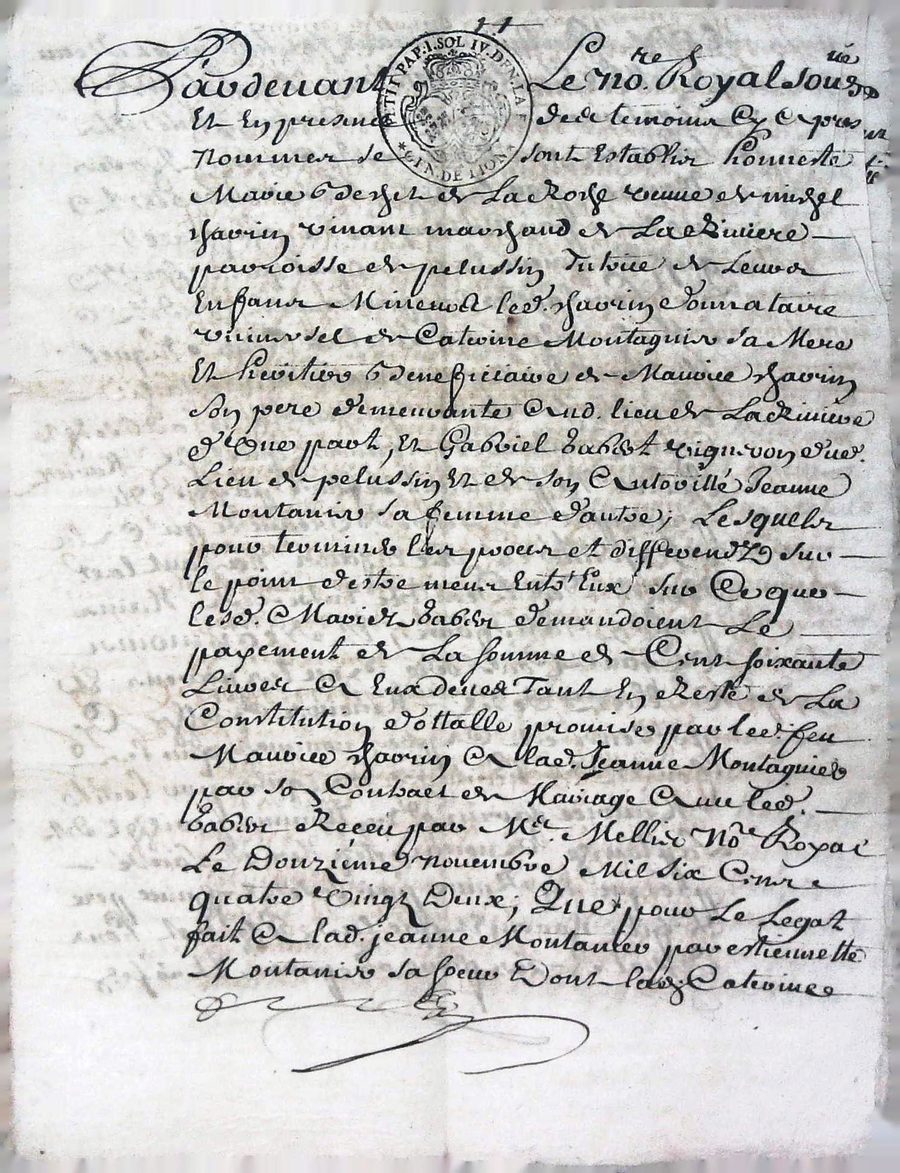 14
PETIT PAP. I. SOL IV. DEN. LA F
GEN. DE LION
Pardevant Le no.re Royal sous.né
Et En presence des temoins Cy apres
nommes se sont Establis honneste
Marie de La Roche veufve de michel
Chavrin vivant marchand de La Riviere
parroisse de pelussin Tutrice de Leurs
Enfans Mineurs led. Chavrin donnataire
universel de Caterine Montagnier sa Mere
Et heritier beneficiaire de Maurice Chavrin
son pere demeurante aud. lieu de La Riviere
d'Une part, Et Gabriel vigneron dud.
Lieu de pelussin Et de son Authorité Jeanne
Montanier sa femme d'autre; Lesquels
pour terminer les proces et differendz sur
le point d'estre meus Entr'Eux sur Ce que
lesd. Mariez demandoient Le
payement de La somme de Cent soixante
Livres A Eux deues Tant En Reste de La
Constitution dottalle promise par led. feu
Maurice Chavrin A lad. Jeanne Montagnier
par son Contract de Mariage Avec led.
Receu par Me. Mellier No.re Royal
Le Douzieme novembre Mil Six Cens
quatre Vingt Deux; Que pour Le Legat
fait A lad. jeanne Montanier par estiennette
Montanier sa soeur Dont lad. Caterine